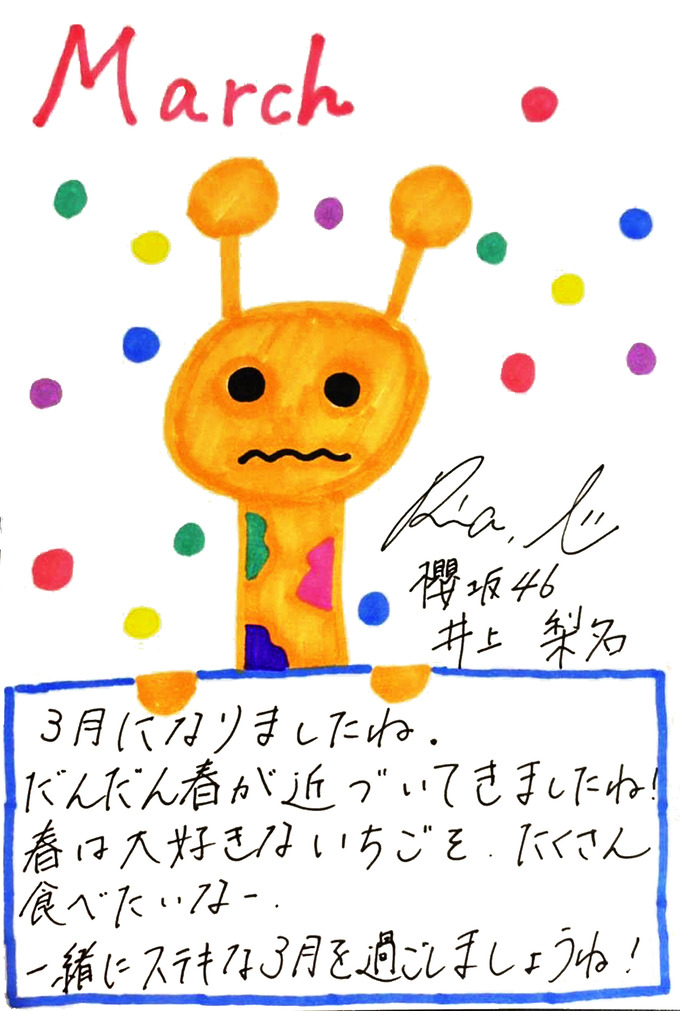 March
Ria.
櫻坂46
井上 梨名
3月になりましたね.
だんだん春が近づいてきましたね!
春は大好きないちごを.たくさん
食べたいなー.
一緒にステキな3月を過ごしましょうね!